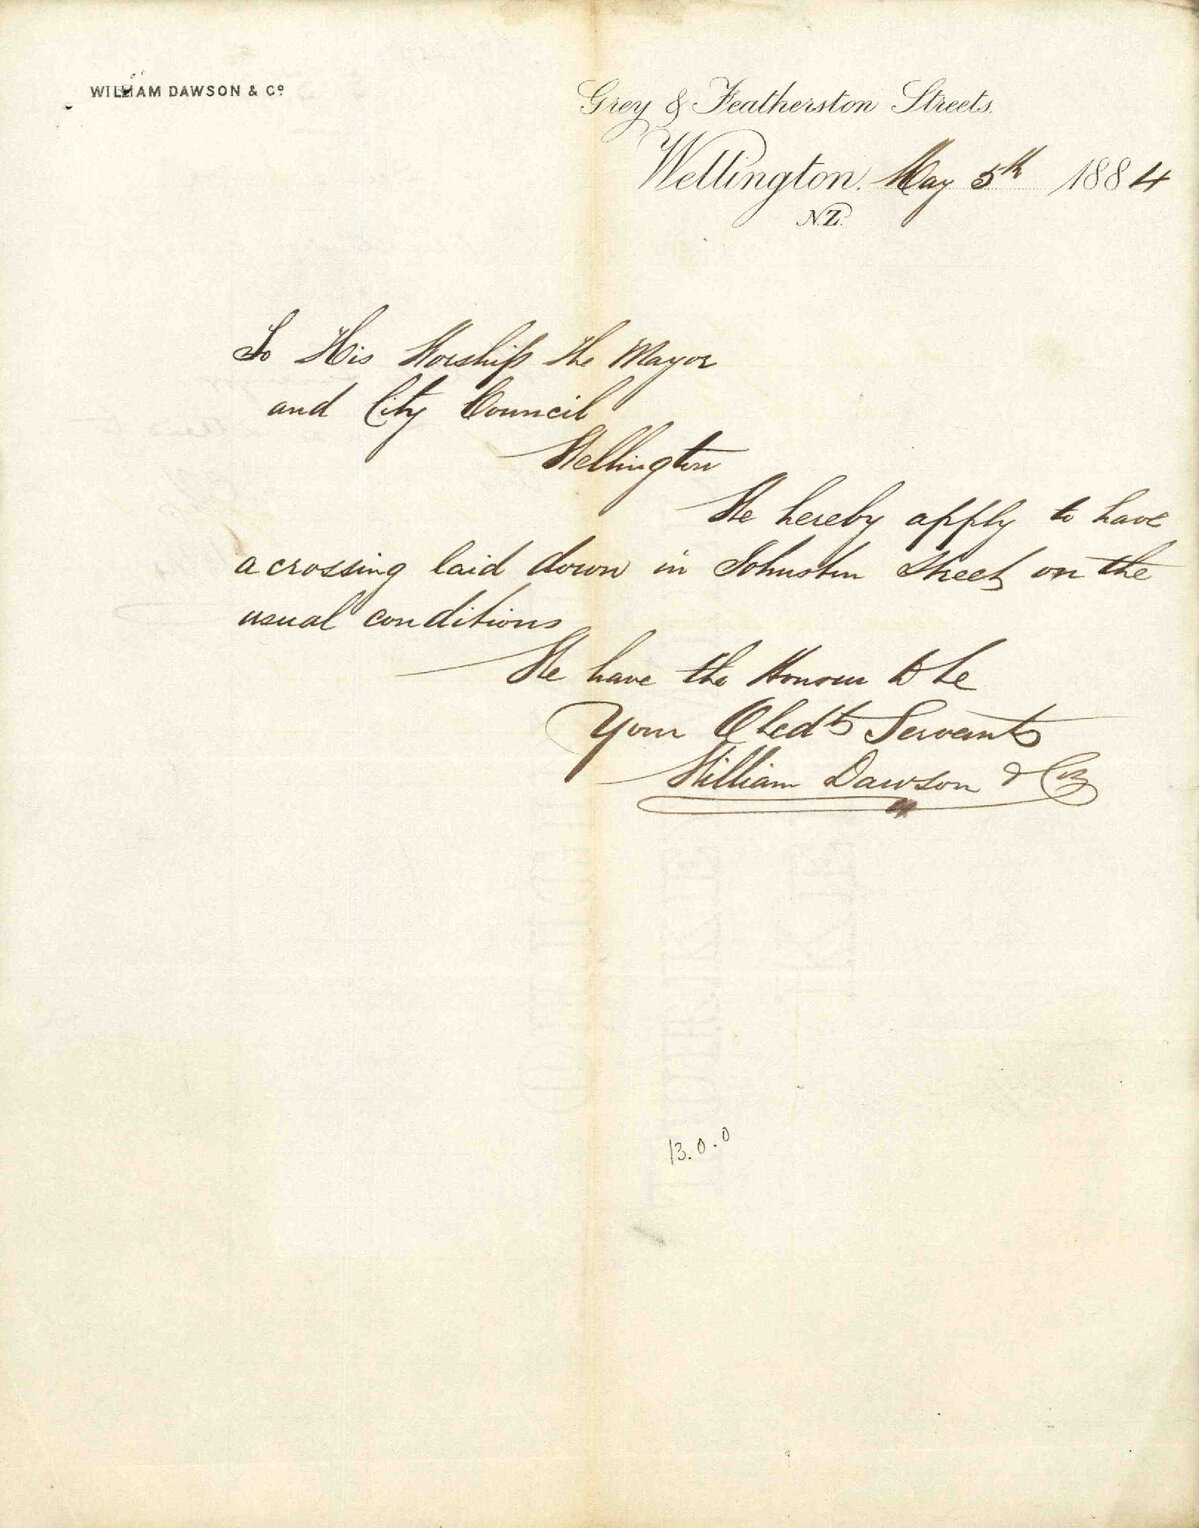 WILLIAM DAWSON & Co
Grey & Featherston Streets.
Wellington, May 5th 1884
N.Z.
To His Worship the Mayor
and City Council
Wellington
We hereby apply to have
a crossing laid down in Johnston Street on the
usual conditions
We have the Honour to be
Your Obedts Servants
William Dawson & Co
13.0.0